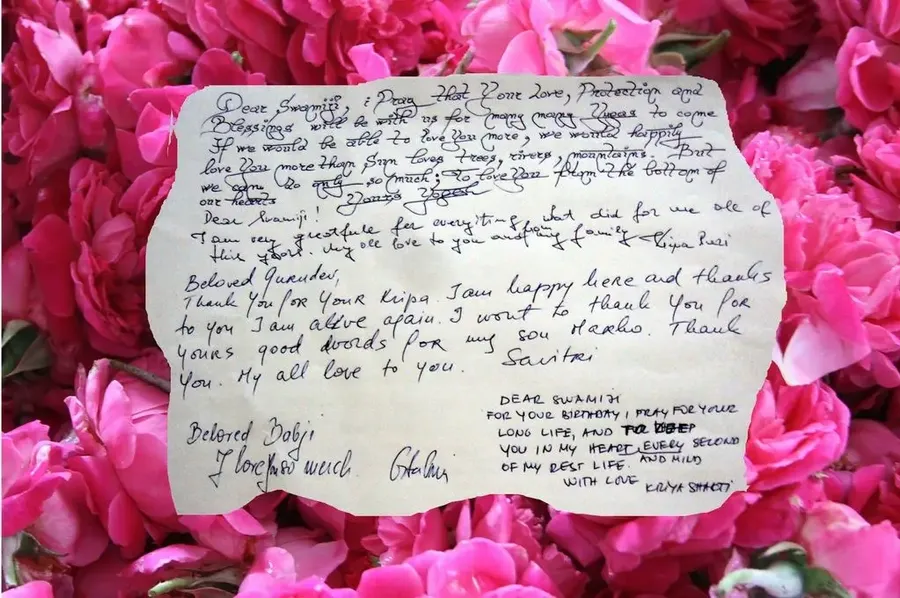 Dear Swamiji, i Pray that Your Love, Protection and
Blessings will be with us for many many Years to come
If we would be able to love You more, we would happily
love You more than Sun loves trees, rivers, mountains. But
we can do only so much; to love You from the bottom of
our hearts Yours Yogesh
Dear Swamiji!
I am very greatfule for everything, what did for me all of
this years. My all love to you and my family Kripa Puri
Beloved Gurudev,
Thank You for Your Kripa. I am happy here and thanks
to you I am alive again. I wont to thank You for
yours good words for my son Marko. Thank
You. My all love to you. Savitri
Beloved Babji
I love you so much
DEAR SWAMIJI
FOR YOUR BIRTHDAY I PRAY FOR YOUR
LONG LIFE, AND TO KEEP
YOU IN MY HEART EVERY SECOND
OF MY REST LIFE. AND MILD
WITH LOVE KRIYA SHAKTI